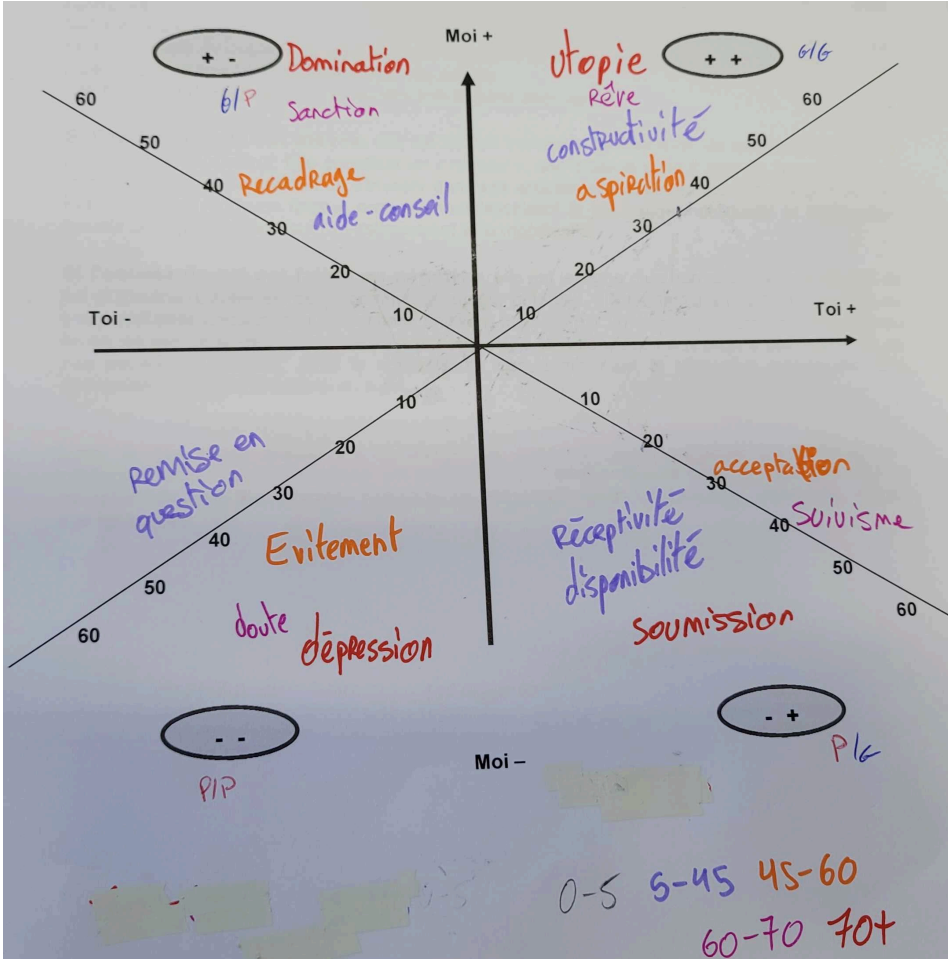 Moi +
+ -
Domination
utopie
+ +
G/G
G/P
Sanction
Rêve
60
60
constructivité
50
50
Recadrage
aspiration
40
40
aide-conseil
30
30
20
20
10
10
Toi -
Toi +
10
10
20
20
Remise en
question
acceptation
30
30
Evitement
Réceptivité
disponibilité
Suivisme
40
40
50
50
doute
dépression
soumission
60
60
- -
- +
P/P
Moi –
P/G
0-5
5-45
45-60
60-70
70+